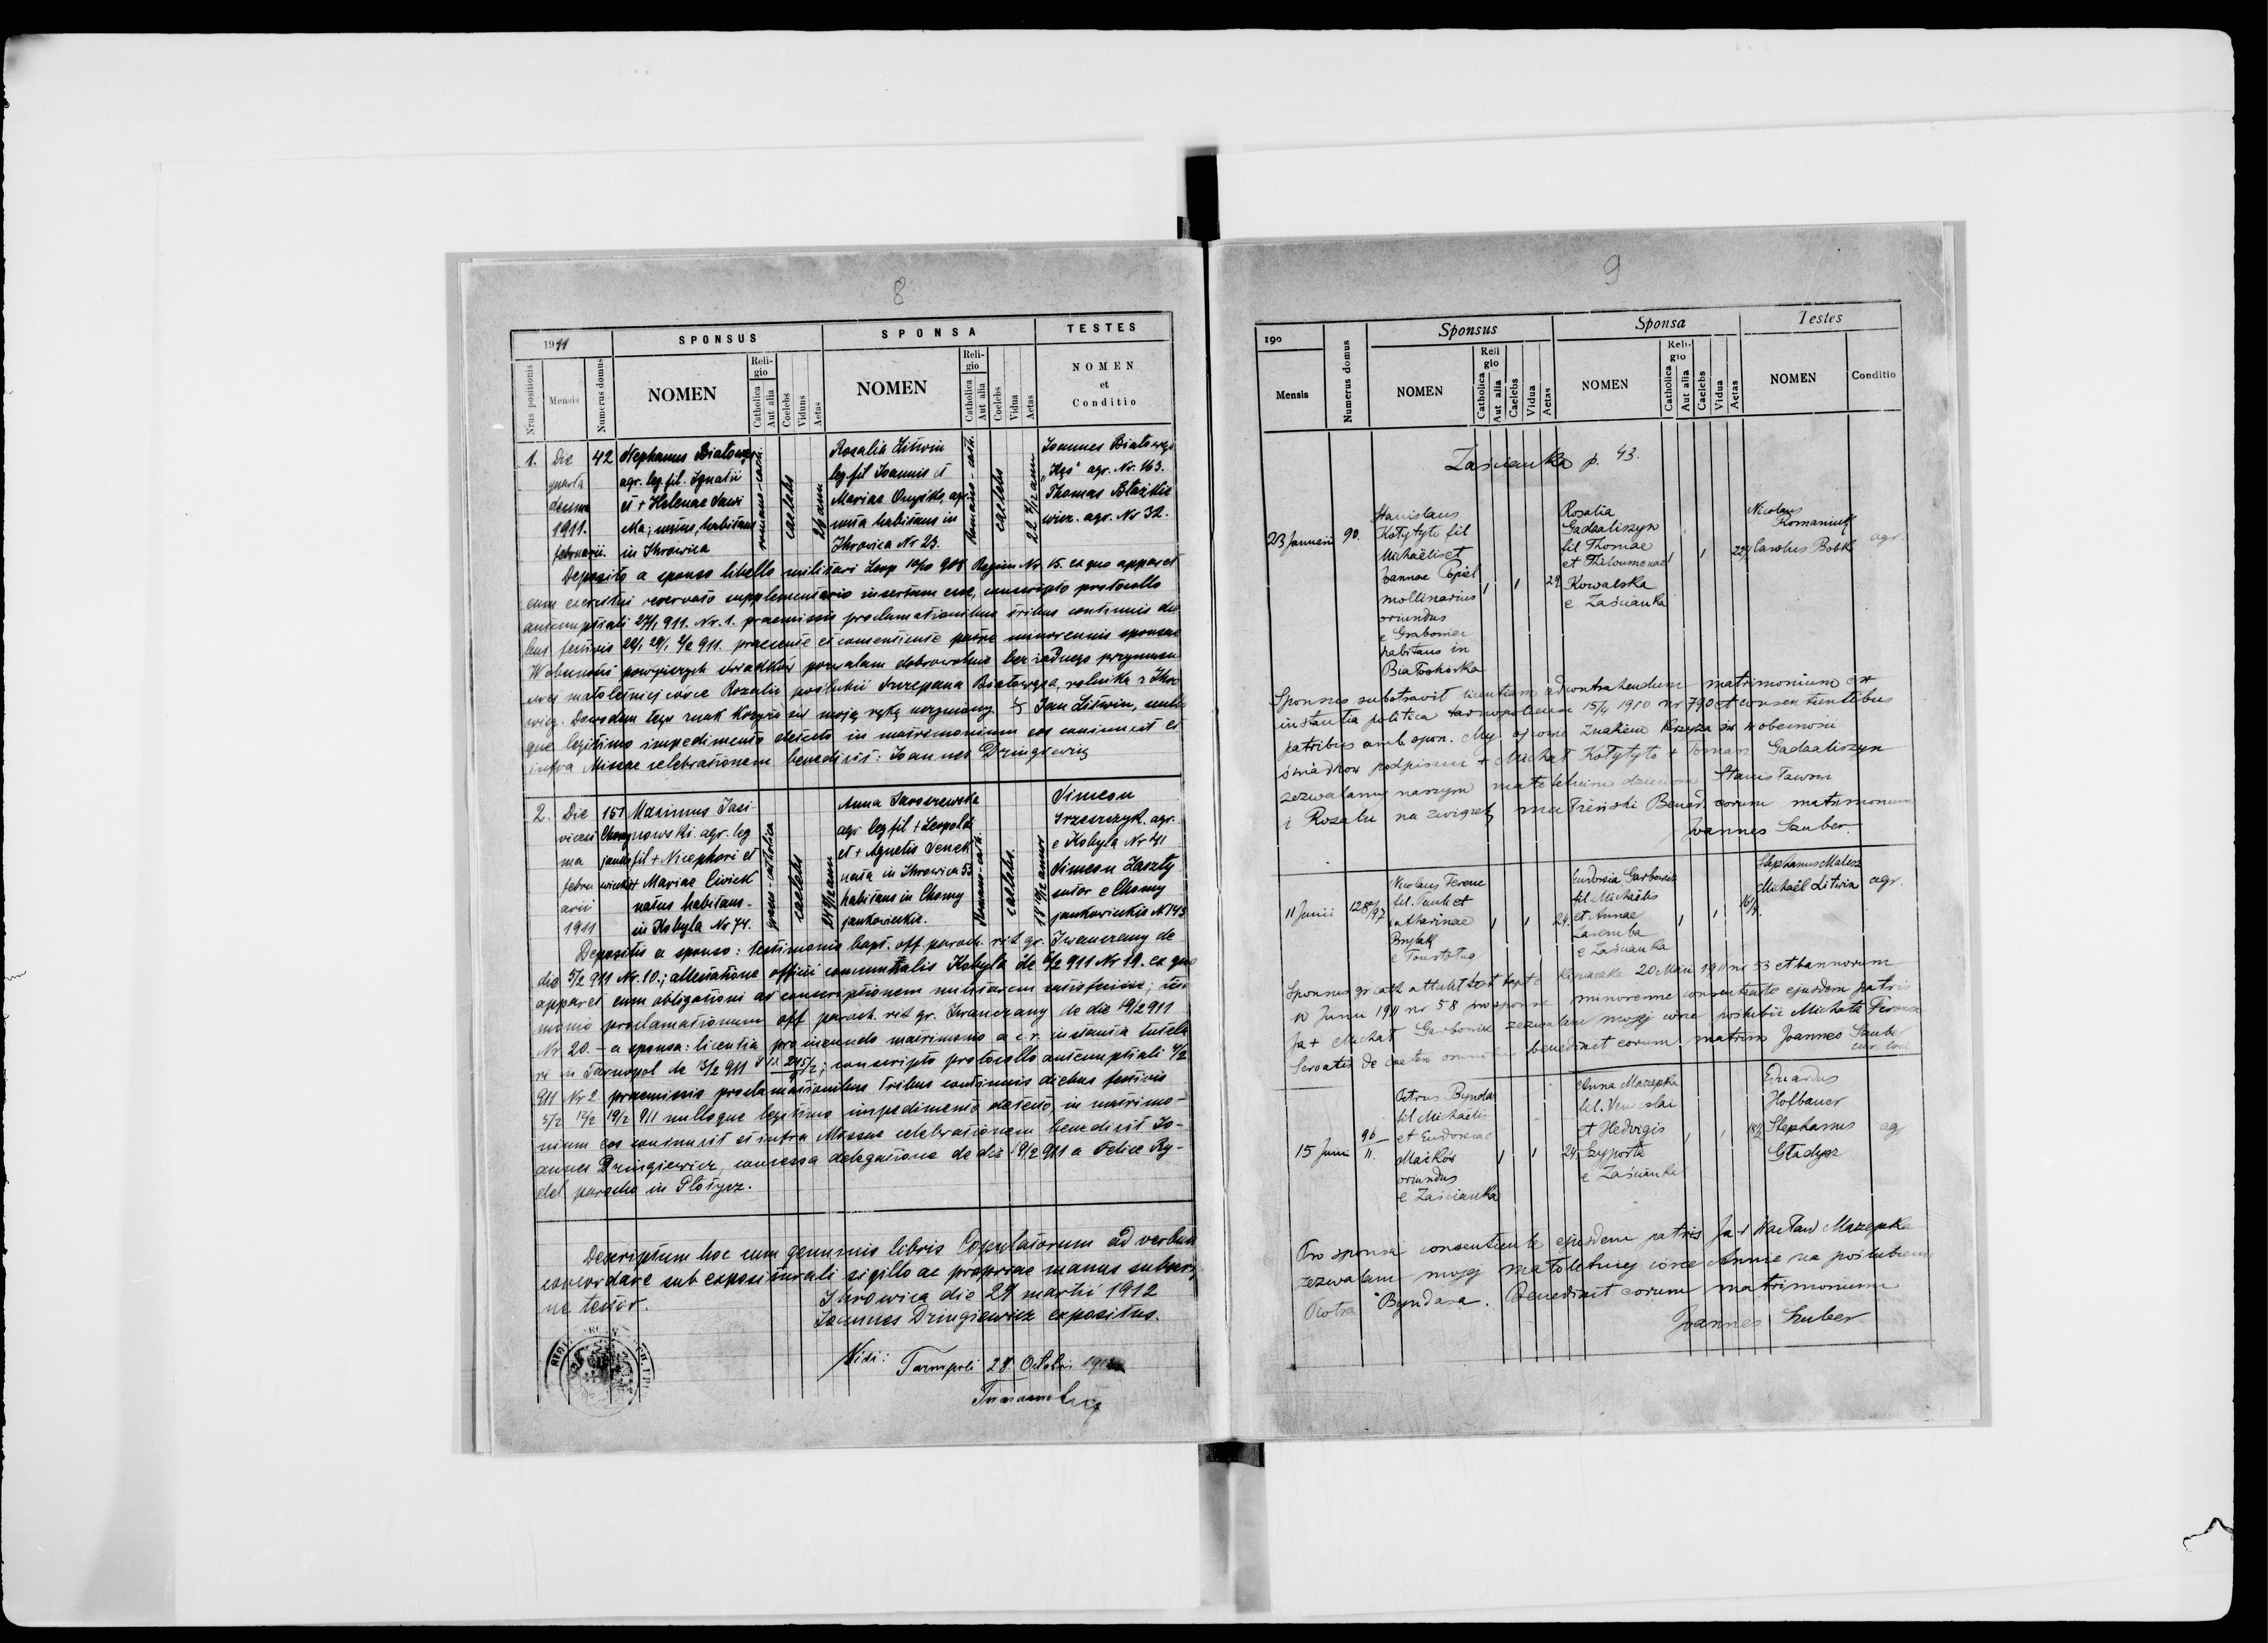 8
1911
SPONSUS
SPONSA
TESTES
Nrus positionis
Mensis
Numerus domus
NOMEN
Religio
Catholica
Aut alia
Coelebs
Viduus
Aetas
NOMEN
Religio
Catholica
Aut alia
Coelebs
Vidua
Aetas
NOMEN
et
Conditio
1. Die quarta decima 1911. februarii.
42
Stephanus Białowąs
agr. leg. fil. Ignatii
et + Helenae Sawi
natus, habitans
in Ihrowica
romano-cath.
caelebs
Rosalia Litwin
leg. fil Joannis et
Mariae agr.
nata habitans in
Ihrovica Nr 23.
romano-cath.
caelebs
Joannes Białowąs
"Kąs" agr. Nr. 163.
Thomas Błażkie
wicz. agr. Nr 32.
Deposito a sponso libello militari Leop 908 Nr. 15. ex quo apparet
eum exercitui reservato supplementario insertum esse, conscripto protocollo
antenuptiali 27/1 911. Nr. 1. praemissis proclamationibus tribus continuis die
bus festivis 22/1 29/1 2/2 911. praesente et consentiente patre minorennis sponsae
W obecności powyższych świadków pozwalam dobrowolnie bez żadnego przymusu
swej małoletniej córce Rozalii poślubić Szczepana Białowąsa, rolnika z Ihro
wicy. Dowodem tego znak Krzyża św moją ręką uczyniony + Jan Litwin, nullo
que legitimo impedimento detecto in matrimonium eos coniunxit et
infra Missae celebrationem benedixit: Joannes Dzingiewicz
2. Die vicesi ma febru arii 1911
151
Maximus Jasi-
nowski. agr. leg
fil + Nicephori et
+ Mariae Civiek
natus habitans
in Kobyla Nr 74.
graeco-catholica
caelebs
Anna Jaroszewska
agr leg fil + Leopoldi
et + Agnetis Senek
nata in Ihrowica 53
habitans in Chomy
jankowieckie.
romano-cath.
caelebs.
Simeon
Grzeszczyk. agr.
e Kobyla Nr 41
Simeon Zaszty
sutor e Chomy
jankowieckie N 143
Deposito a sponso: testimonio bapt. off. paroch. rit. gr. Iwanczany de
die 5/2 911 Nr. 10.; attestatione officii communitalis Kobyla de 5/2 911 Nr 19. ex quo
apparet eum obligationi ad conscriptionem militarem satisfecisse; testi
monio proclamationum off paroch. rit gr. Iwanczany de die 19/2 911
Nr 20. - a sponsa: licentia pro ineundo matrimonio a c. r. instantia tutela
ri in Tarnopol de 13/2 911; conscripto protocollo antenuptiali 4/2
911 Nr 2. praemissis proclamationibus tribus continuis diebus festivis
5/2 12/2 19/2 911 nulloque legitimo impedimento detecto, in matrimo-
nium eos coniunxit et infra Missae celebrationem benedixit Jo-
annes Dzingiewicz, concessa delegatione de die 19/2 911 a Felice Ry-
del parocho in Płotycz.
Descriptum hoc cum genuinis libris Copulatorum ad verbum
concordare sub expositurali sigillo ac propriae manus subscrip
ne testor.
Ihrowica die 29 martii 1912
Joannes Dzingiewicz expositus.
Vidi: Tarnopoli 28. Octobri
9
190
Sponsus
Sponsa
Testes
Mensis
Numerus domus
NOMEN
Religio
Catholica
Aut alia
Caelebs
Vidua
Aetas
NOMEN
Religio
Catholica
Aut alia
Caelebs
Vidua
Aetas
NOMEN
Conditio
Zaścianka p. 43.
23 Januarii
90.
Stanislaus
Kotytyto fil
Michaëlis et
Joannae Popiel
mollinarius
oriundus
e Grabowiec
habitans in
Białoskorka
29
Rosalia
Gadzaliszyn
fil Thomae
et Philoumenae
Kowalska
e Zaścianka
Nicolaus
Romaniuk
Carolus Bobk
agr.
Sponsus substravit licentiam ad contrahendum matrimonium ex
instantia politica tarnopoliensi 15/4 1910 nr 790 et consentientibus
patribus amb. spon. My ojcowie Znakiem Krzyża św w obecności
świadkow podpisani + Michał Kotytyto + Tomasz Gadzaliszyn
zezwalamy naszym małoletnim dzieciom Stanisławowi
i Rozalii na związek małżeński Bened. eorum matrimonium
Joannes Szuber.
11 Junii
128/97
Nicolaus Ferenc
fil. Pauli et
Catharinae
Brylak
e Toustoług
24.
Eudoxia Garbowicz
fil Michaëlis
et Annae
Zaremba
e Zaścianka
Stephanus Malecz
Michaël Litwin
agr.
Sponsus gr cath attulit test bapt e 20 Maii 1911 nr 53 et bannorum
10 Junii 1911 nr 58 pro sponsa minorenne consentiente ejusdem patris
Ja + Michał Garbowicz zezwalam mojej córce poślubić Michała Ferenca
Servatis de caetero omnibus benedixit eorum matrim Joannes Szuber
15 Junii
96
11.
Petrus Byndas
fil Michaëlis
et Eudoxiae
Maćków
oriundus
e Zaścianka
24.
Anna Mazepka
fil. Venceslai
et Hedvigis
Szyposta
e Zaścianka
Eduardus
Hofbauer
Stephanus
Gładysz
agr
Pro sponsa consentiente ejusdem patris Ja + Wacław Mazepka
zezwalam mojej małoletniej córce Annie na poślubienie
Piotra Byndasa. Benedixit eorum matrimonium
Joannes Szuber